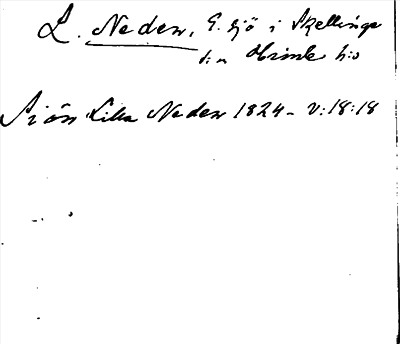 L. Neden, E. sjö i Skellinge
s:n Åkinds h:d
Sjön Lilla Neden 1824 - V:18:18